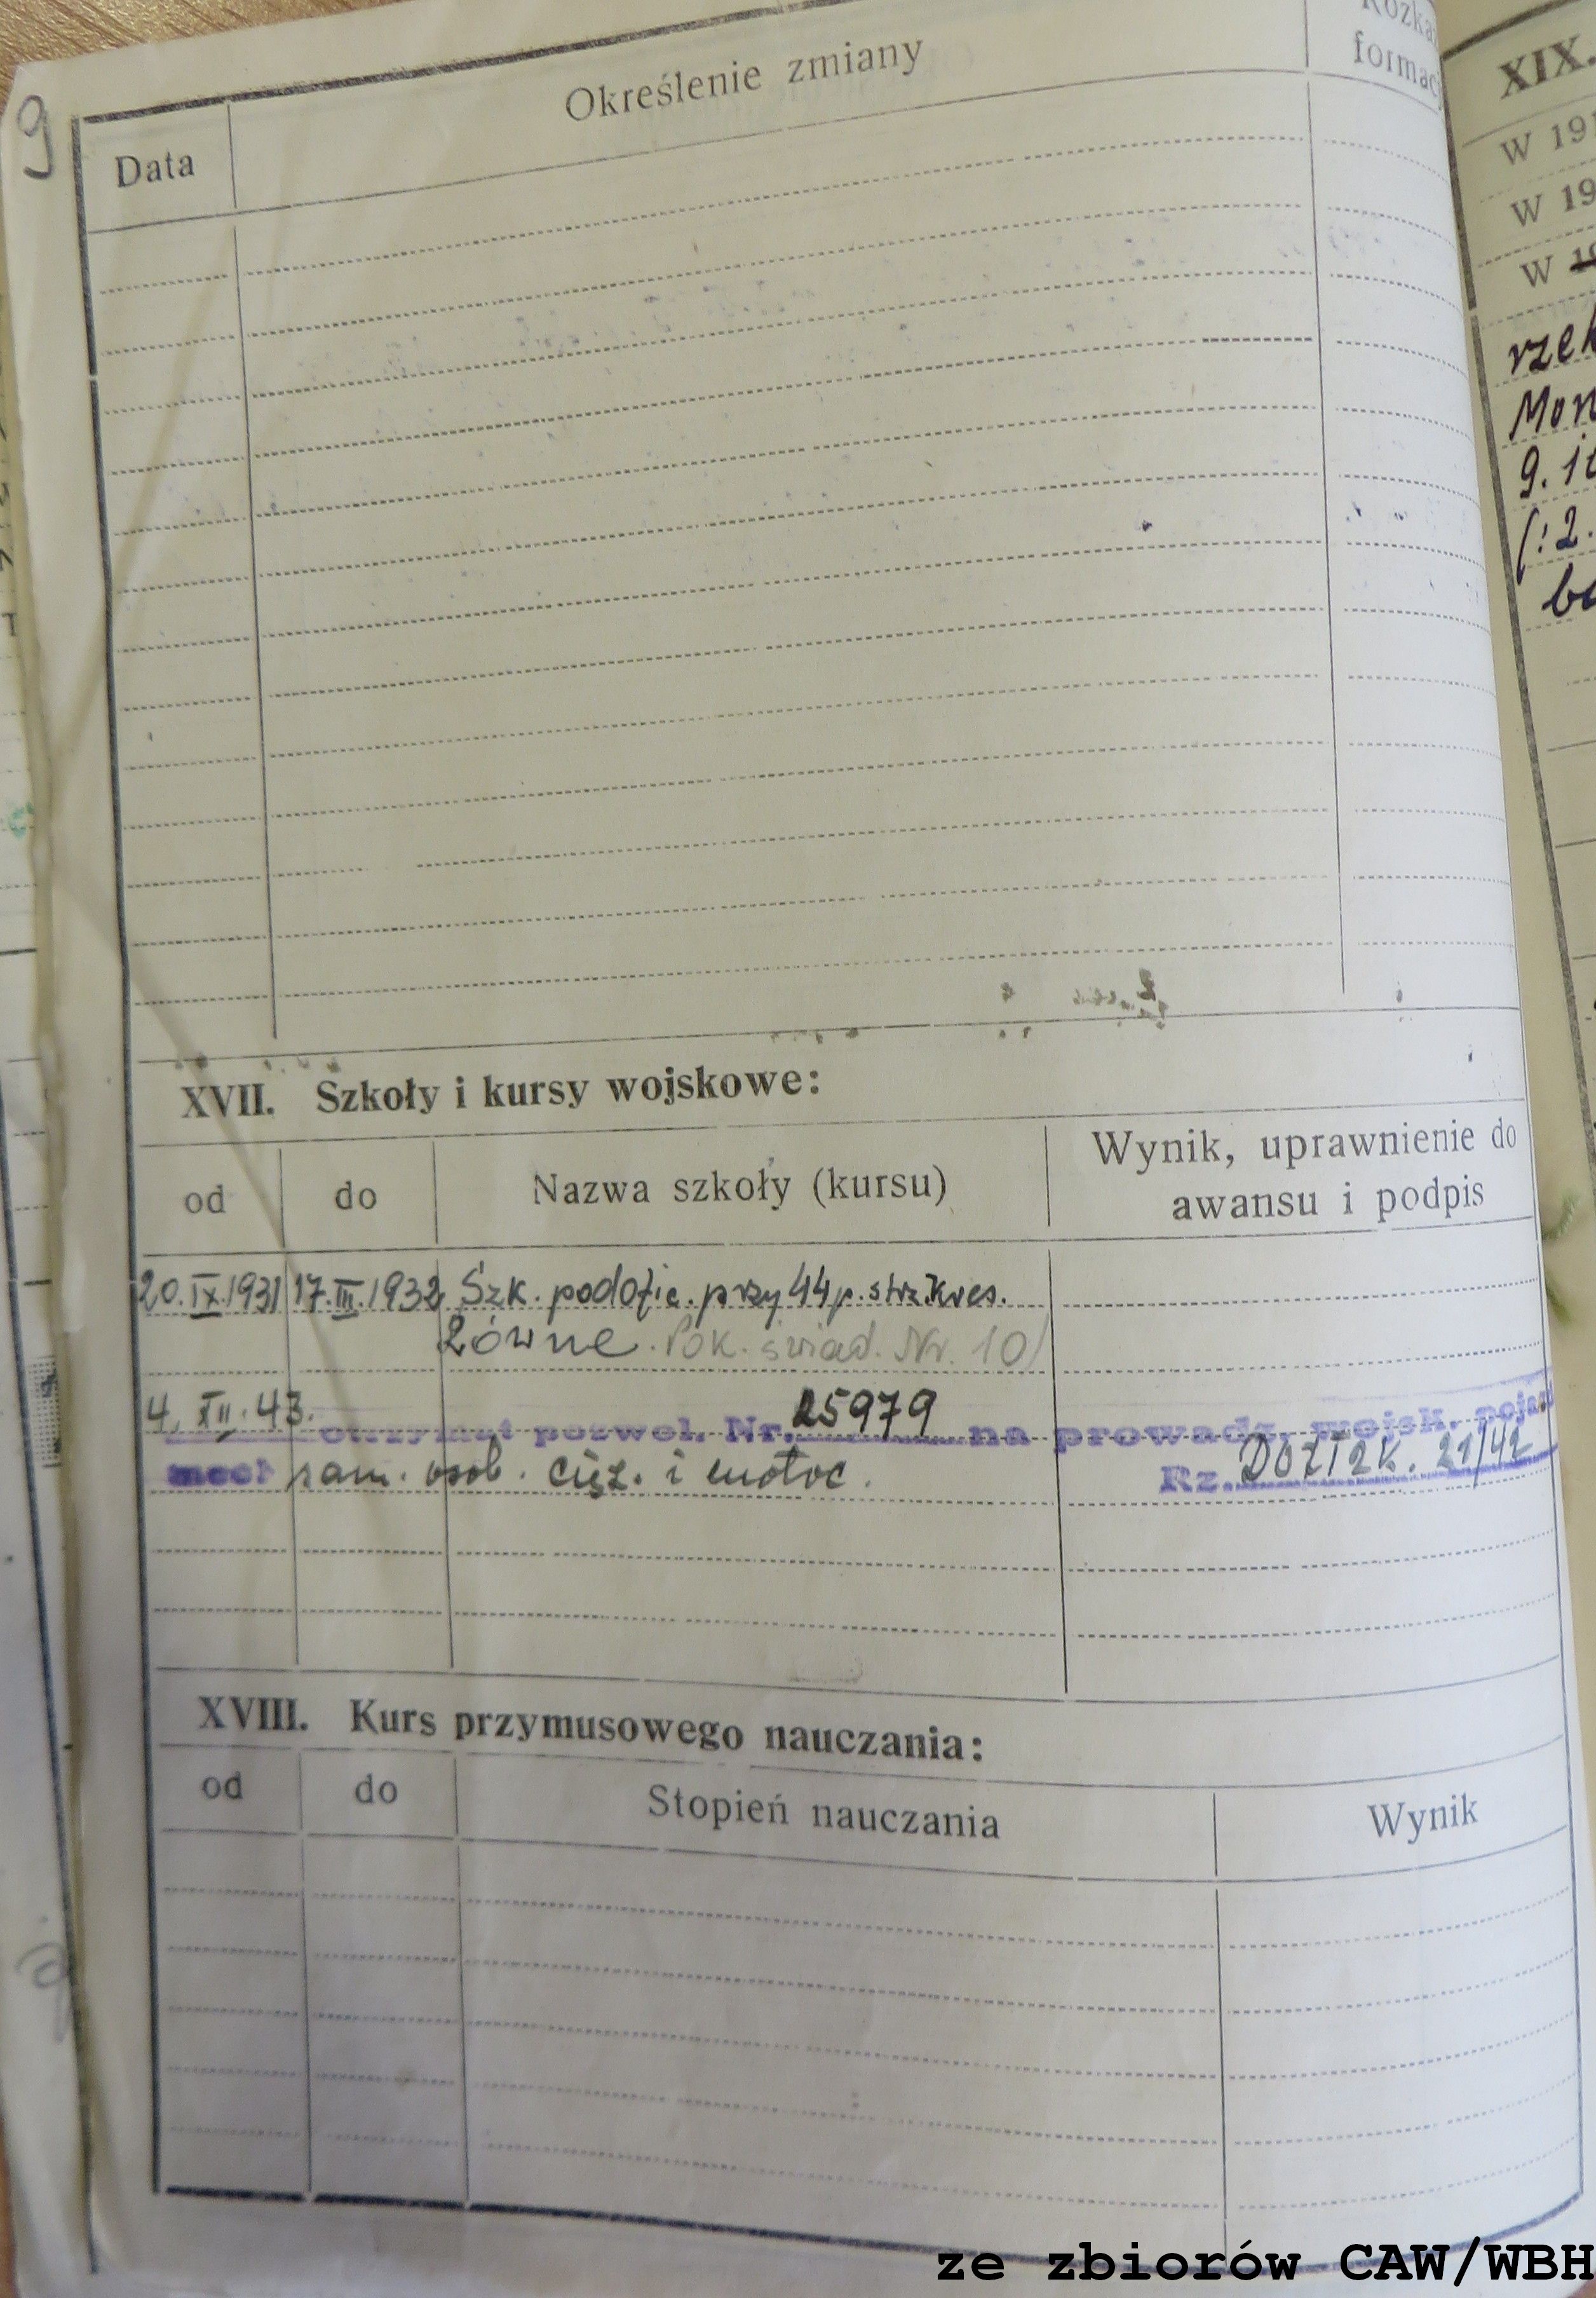 9
Określenie zmiany
formac
Data
XVII. Szkoły i kursy wojskowe:
od do Nazwa szkoły (kursu) Wynik, uprawnienie do
awansu i podpis
20.IX.1931 17.III.1932 Szk. podofic. przy 44 p. strz. Kres.
Równe. Pok. świad. Nr. 10/
4. XII. 43. otrzymał pozwol. Nr. 25979 na prowadz. wojsk. pojazd
mech sam. osob. cięż. i motoc.
Rz. 21/42
XVIII. Kurs przymusowego nauczania:
od do Stopień nauczania Wynik
XIX.
W 19
W 19
W
rzek
Mon
9.
(:2.
ze zbiorów CAW/WBH